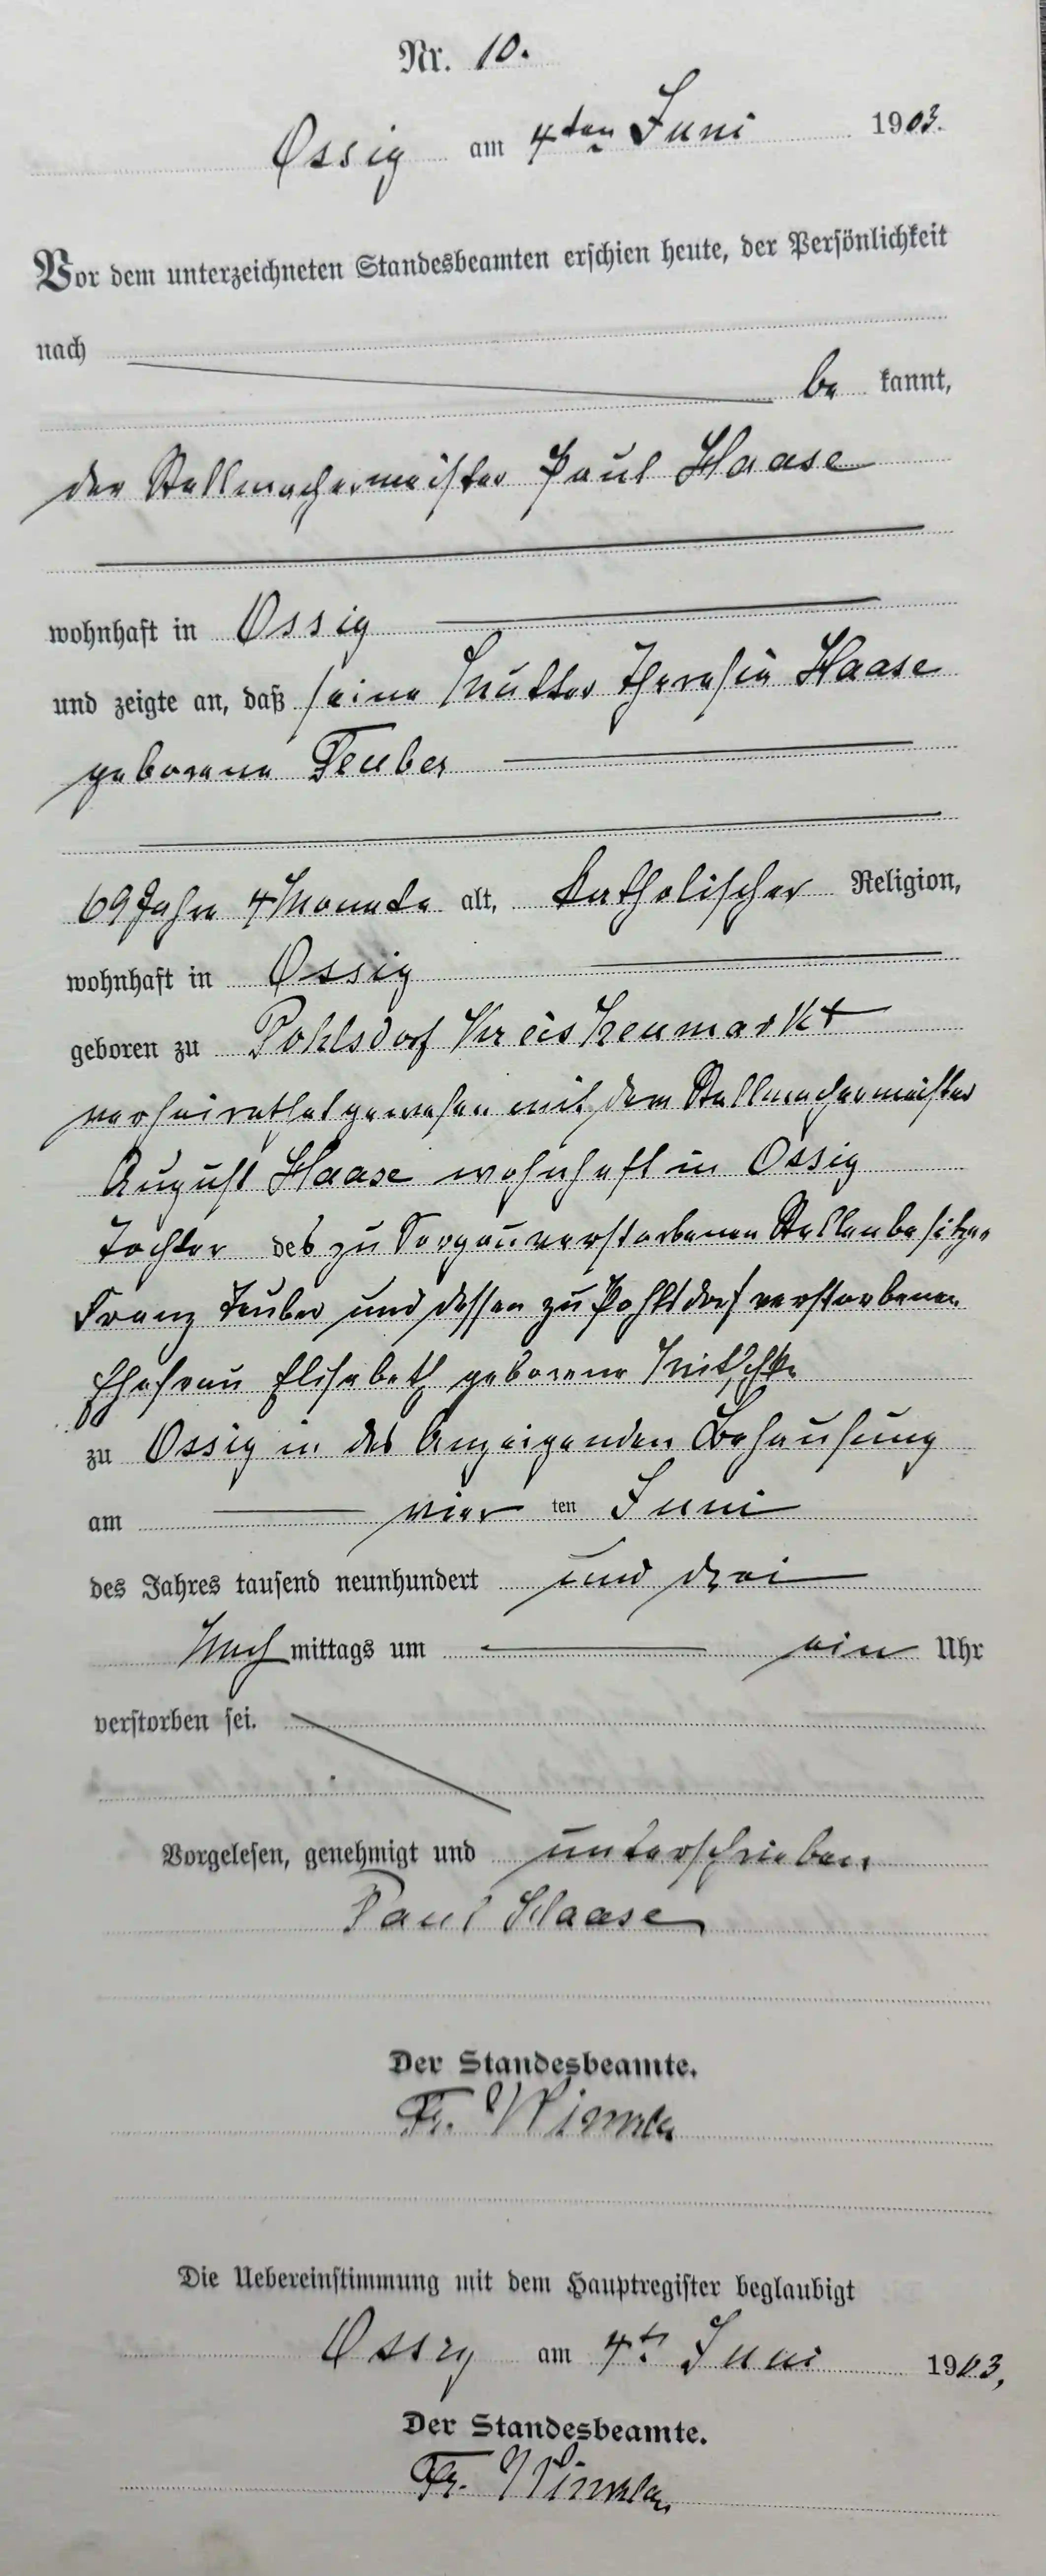 Nr. 10.
Ossig am 4ten Juni 1903.
Vor dem unterzeichneten Standesbeamten erschien heute, der Persönlichkeit
nach
be kannt,
der Stellmachermeister Paul Haase
wohnhaft in Ossig
und zeigte an, daß seine Mutter Theresia Haase
geborene Teuber
69 Jahre 4 Monate alt, katholischer Religion,
wohnhaft in Ossig
geboren zu Pohlsdorf Kreis Neumarkt
verheirathet gewesen mit dem Stellmachermeister
August Haase wohnhaft in Ossig
Tochter des zu verstorbenen Stellenbesitzer
Franz Teuber und dessen zu Pohlsdorf verstorbenen
Ehefrau Elisabeth geborene
zu Ossig in des Anzeigenden Behausung
am vier ten Juni
des Jahres tausend neunhundert und drei
Nach mittags um ein Uhr
verstorben sei.
Vorgelesen, genehmigt und unterschrieben
Paul Haase
Der Standesbeamte.
Fr.
Die Uebereinstimmung mit dem Hauptregister beglaubigt
Ossig am 4ten Juni 1903,
Der Standesbeamte.
Fr.